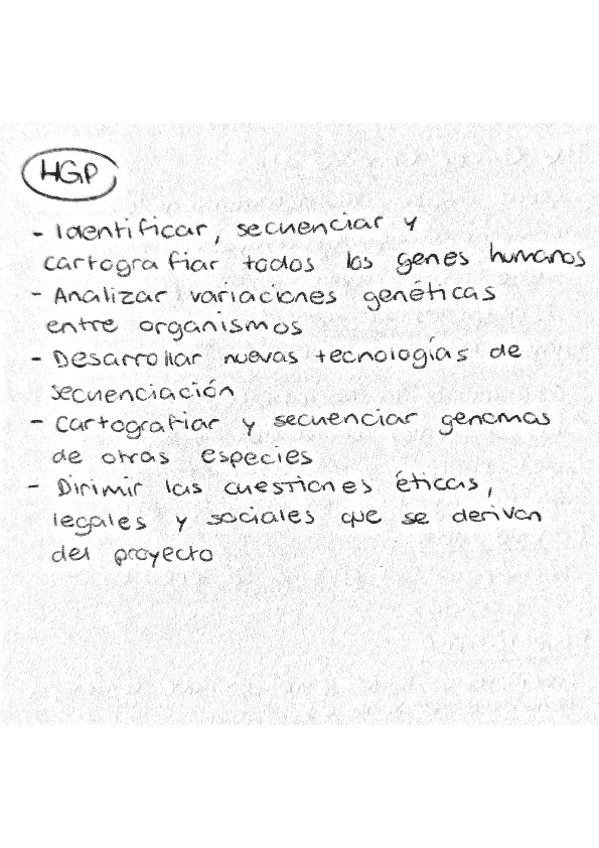 HGP
- Identificar, secuenciar y
cartografiar todos los genes humanos
- Analizar variaciones genéticas
entre organismos
- Desarrollar nuevas tecnologías de
secuenciación
- Cartografiar y secuenciar genomas
de otras especies
- Dirimir las cuestiones éticas,
legales y sociales que se derivan
del proyecto